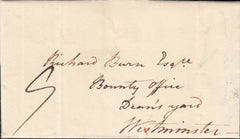 Richard Burn Esqre
Bounty Office
Dean's yard
Westminster